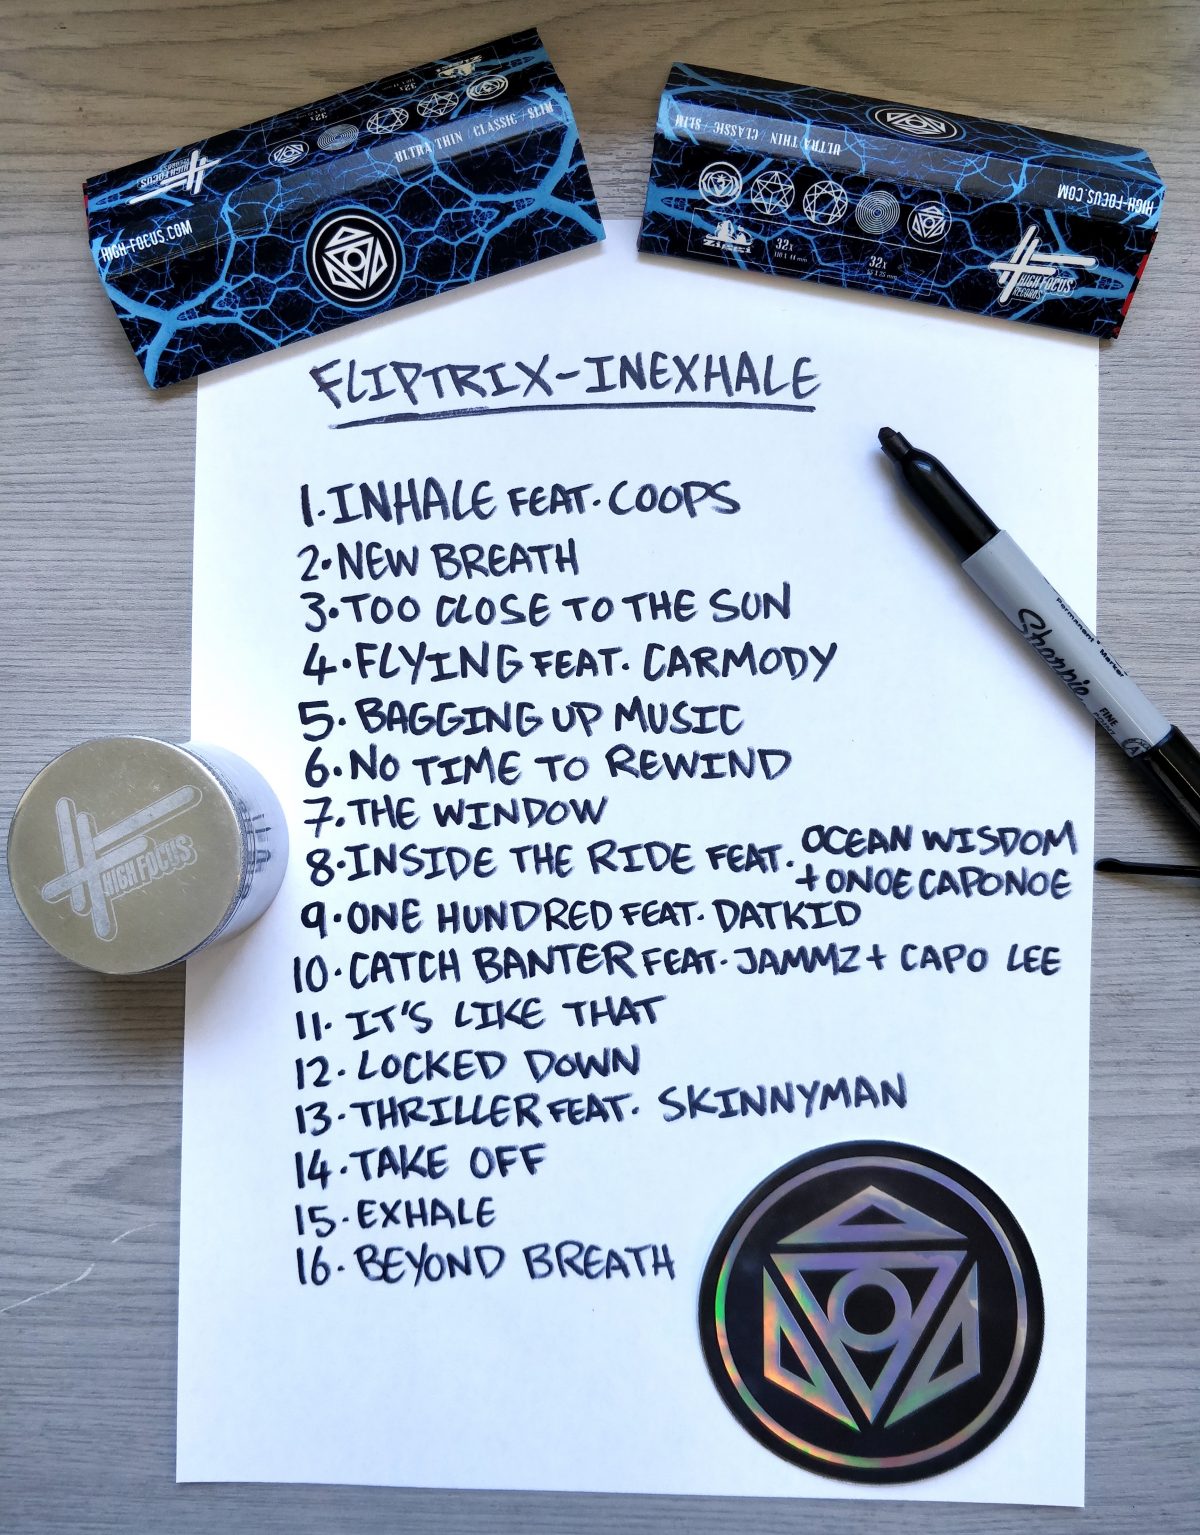 Ziggi
32x
32x
HIGH FOCUS
RECORDS
ULTRA THIN / CLASSIC / SLIM
HIGH-FOCUS.COM
ULTRA THIN / CLASSIC / SLIM
HIGH-FOCUS.COM
Ziggi
32x
110 X 44 mm
32x
HIGH FOCUS
RECORDS
FLIPTRIX-INEXHALE
1. INHALE FEAT. COOPS
2. NEW BREATH
3. TOO CLOSE TO THE SUN
4. FLYING FEAT. CARMODY
5. BAGGING UP MUSIC
6. NO TIME TO REWIND
7. THE WINDOW
8. INSIDE THE RIDE FEAT. OCEAN WISDOM
+ ONOE CAPONOE
9. ONE HUNDRED FEAT. DATKID
10. CATCH BANTER FEAT. JAMMZ + CAPO LEE
11. IT'S LIKE THAT
12. LOCKED DOWN
13. THRILLER FEAT. SKINNYMAN
14. TAKE OFF
15. EXHALE
16. BEYOND BREATH
Permanent Marker
Sharpie
FINE
POINT
HIGH FOCUS